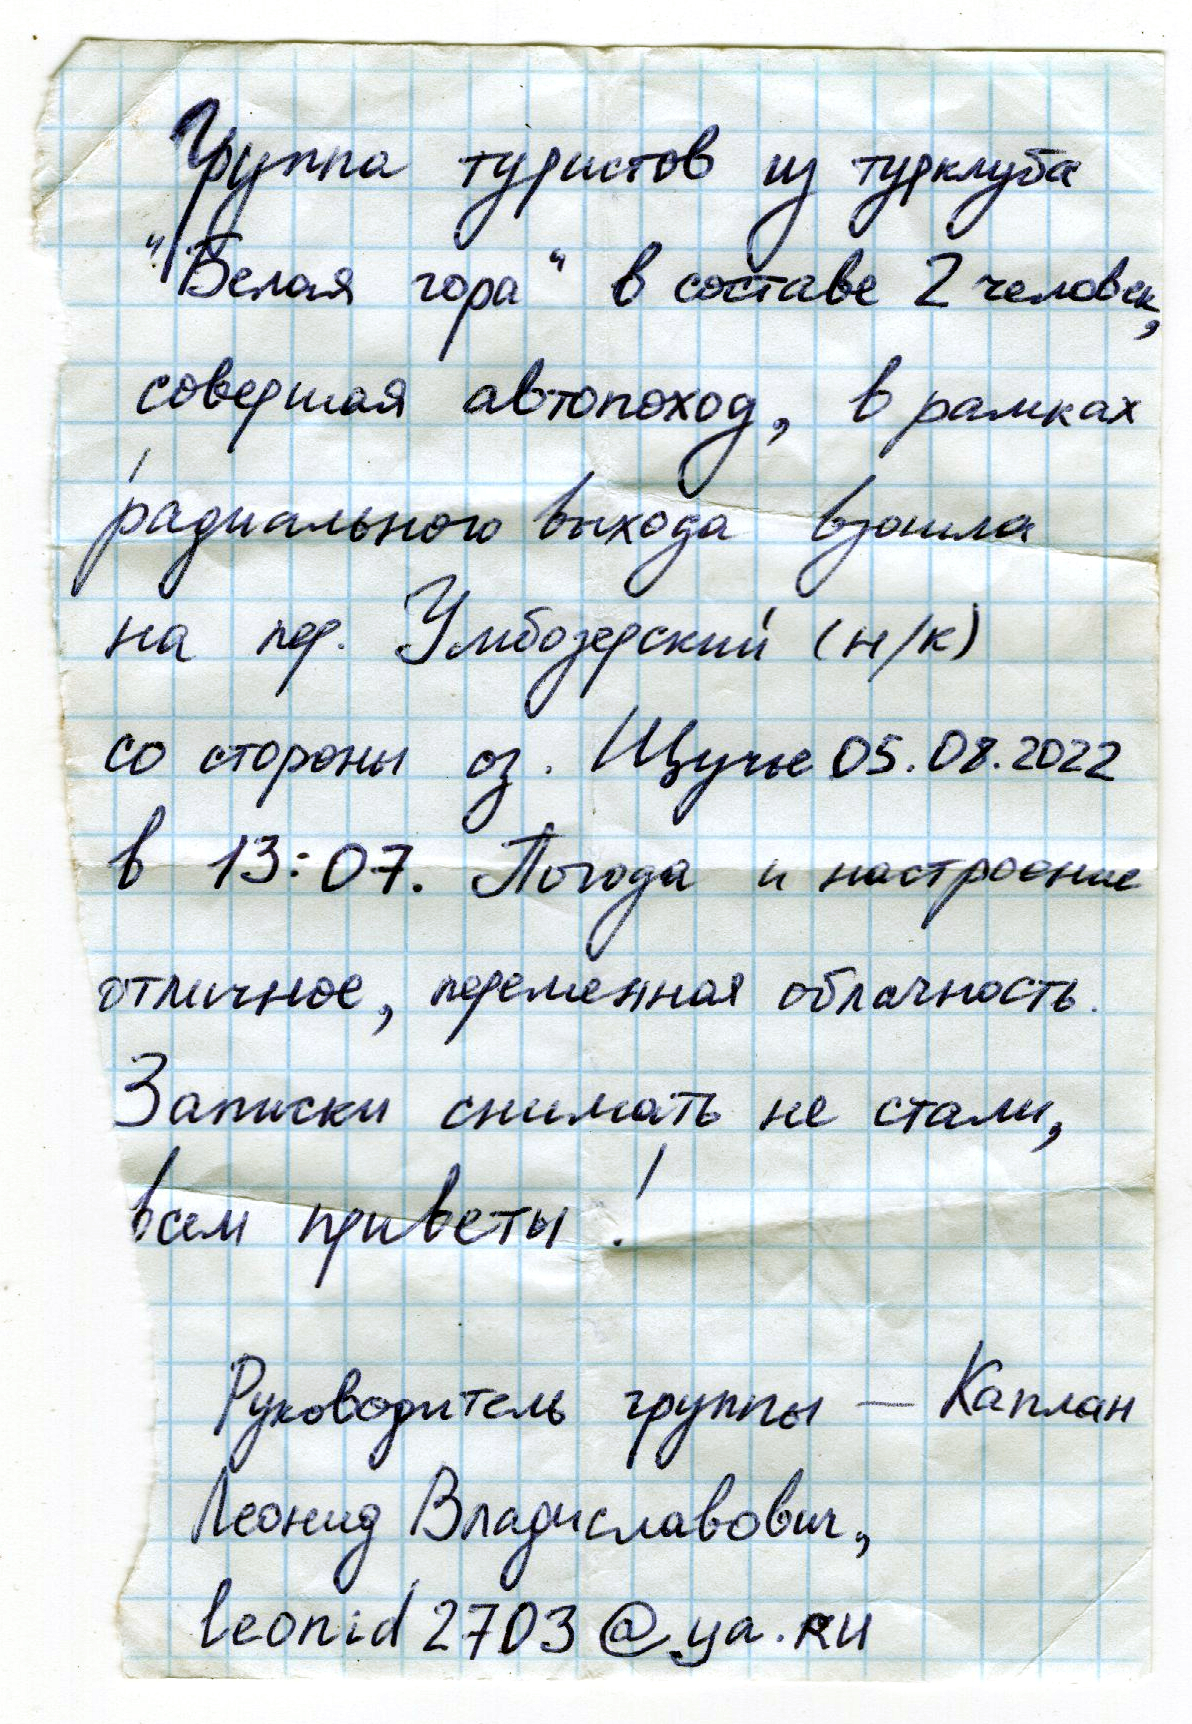 Группа туристов из турклуба
"Белая гора" в составе 2 человек,
совершая автопоход, в рамках
радиального выхода взошла
на пер. Умбозерский (н/к)
со стороны оз. Щучье 05.08.2022
в 13:07. Погода и настроение
отличное, переменная облачность.
Записки снимать не стали,
всем приветы!
Руководитель группы — Каплан
Леонид Владиславович,
leonid2703@ya.ru